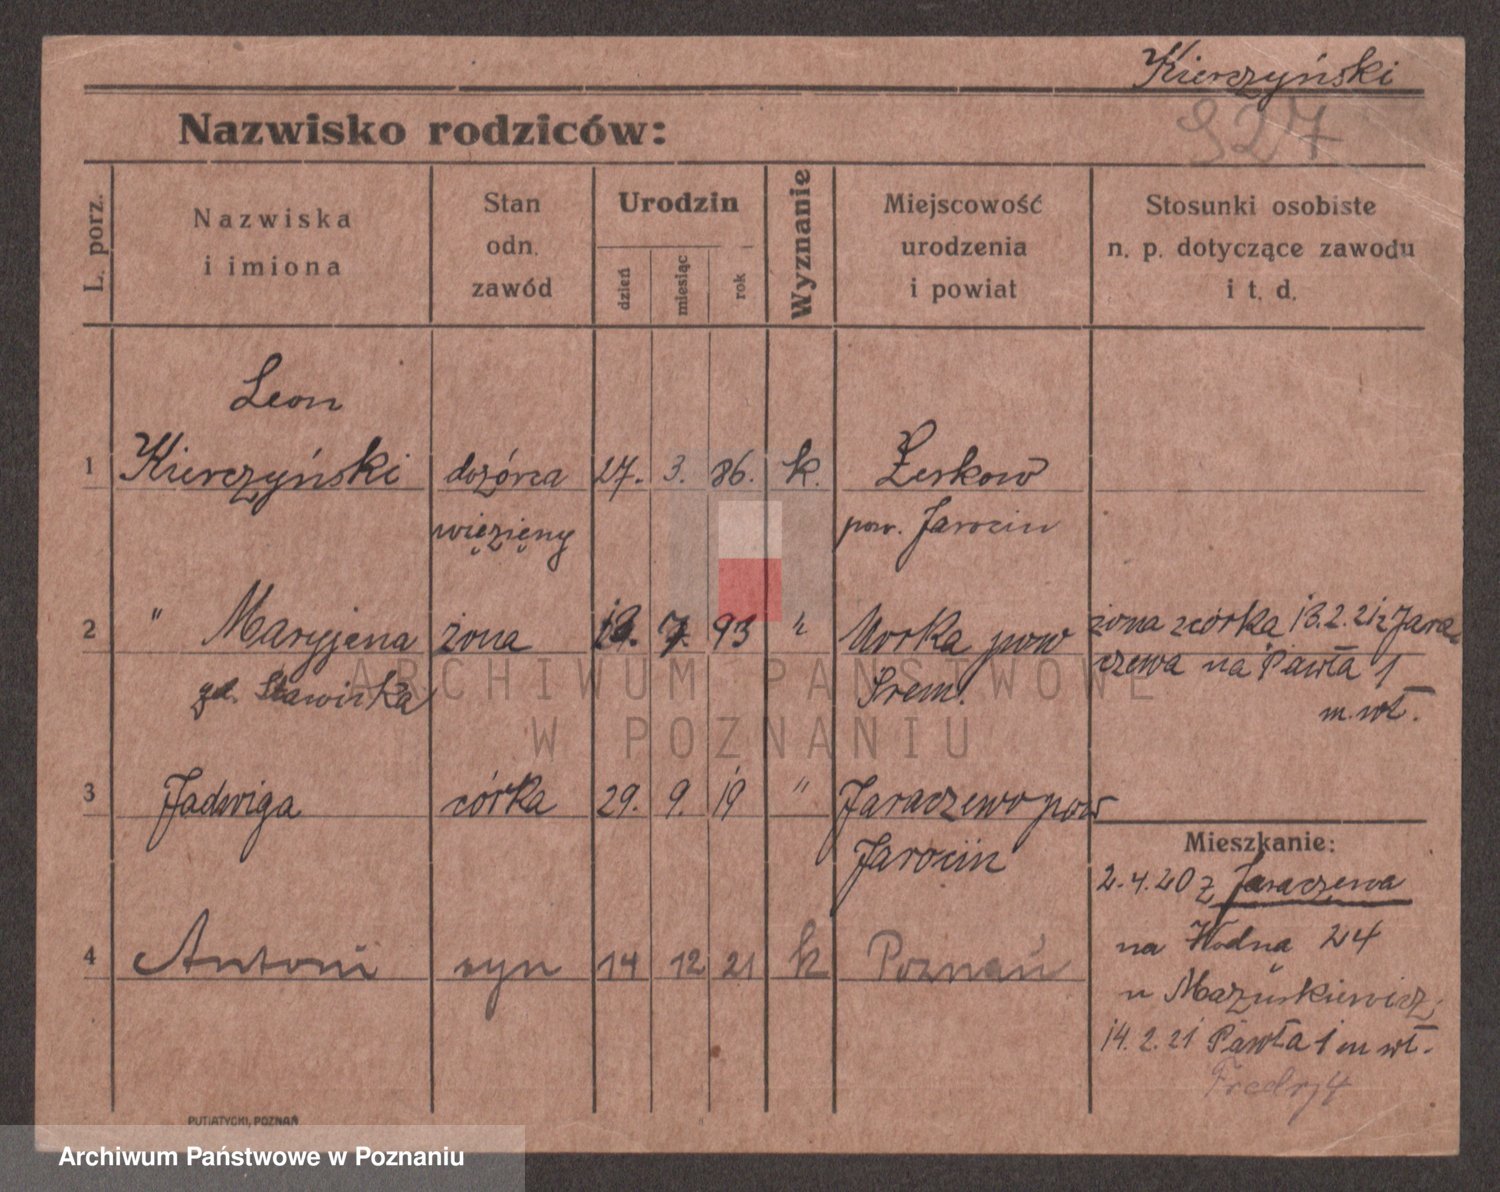 Kierczyński
927
Nazwisko rodziców:
L. porz.
Nazwiska
i imiona
Stan
odn.
zawód
Urodzin
dzień
miesiąc
rok
Wyznanie
Miejscowość
urodzenia
i powiat
Stosunki osobiste
n. p. dotyczące zawodu
i t. d.
Leon
1 Kierczyński dozórca 27. 3. 86. k. Żerkow
więzięny pow. Jarocin
2 " Maryjena żona 7. 93 " Morka pow żona z córką 13.2.21 z Jara-
gd. Stawiska Śrem. czewa na Pawła 1
m. wł.
3 Jadwiga córka 29. 9. 19 " Jaraczewo pow
Jarocin
Mieszkanie:
2.4.20 z Jaraczewa
na Wodna 24
4 Antoni syn 14 12 21 k Poznań
u Mazurkiewicz.
14.2.21 Pawła 1 m wł.
Fredry 4
PUTIATYCKI, POZNAŃ
ARCHIWUM PAŃSTWOWE
W POZNANIU
Archiwum Państwowe w Poznaniu